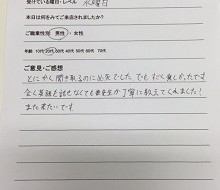 受けている曜日・レベル 水曜日
本日は何をみてご来店されましたか?
ご職業性別 男性・女性
年齢 10代 20代 30代 40代 50代 60代 70代
ご意見・ご感想
とにかく聞き取るのに必死でした でもすごく楽しかったです
全く英語を話せなくても先生が丁寧に教えてくれました!
また来たいです